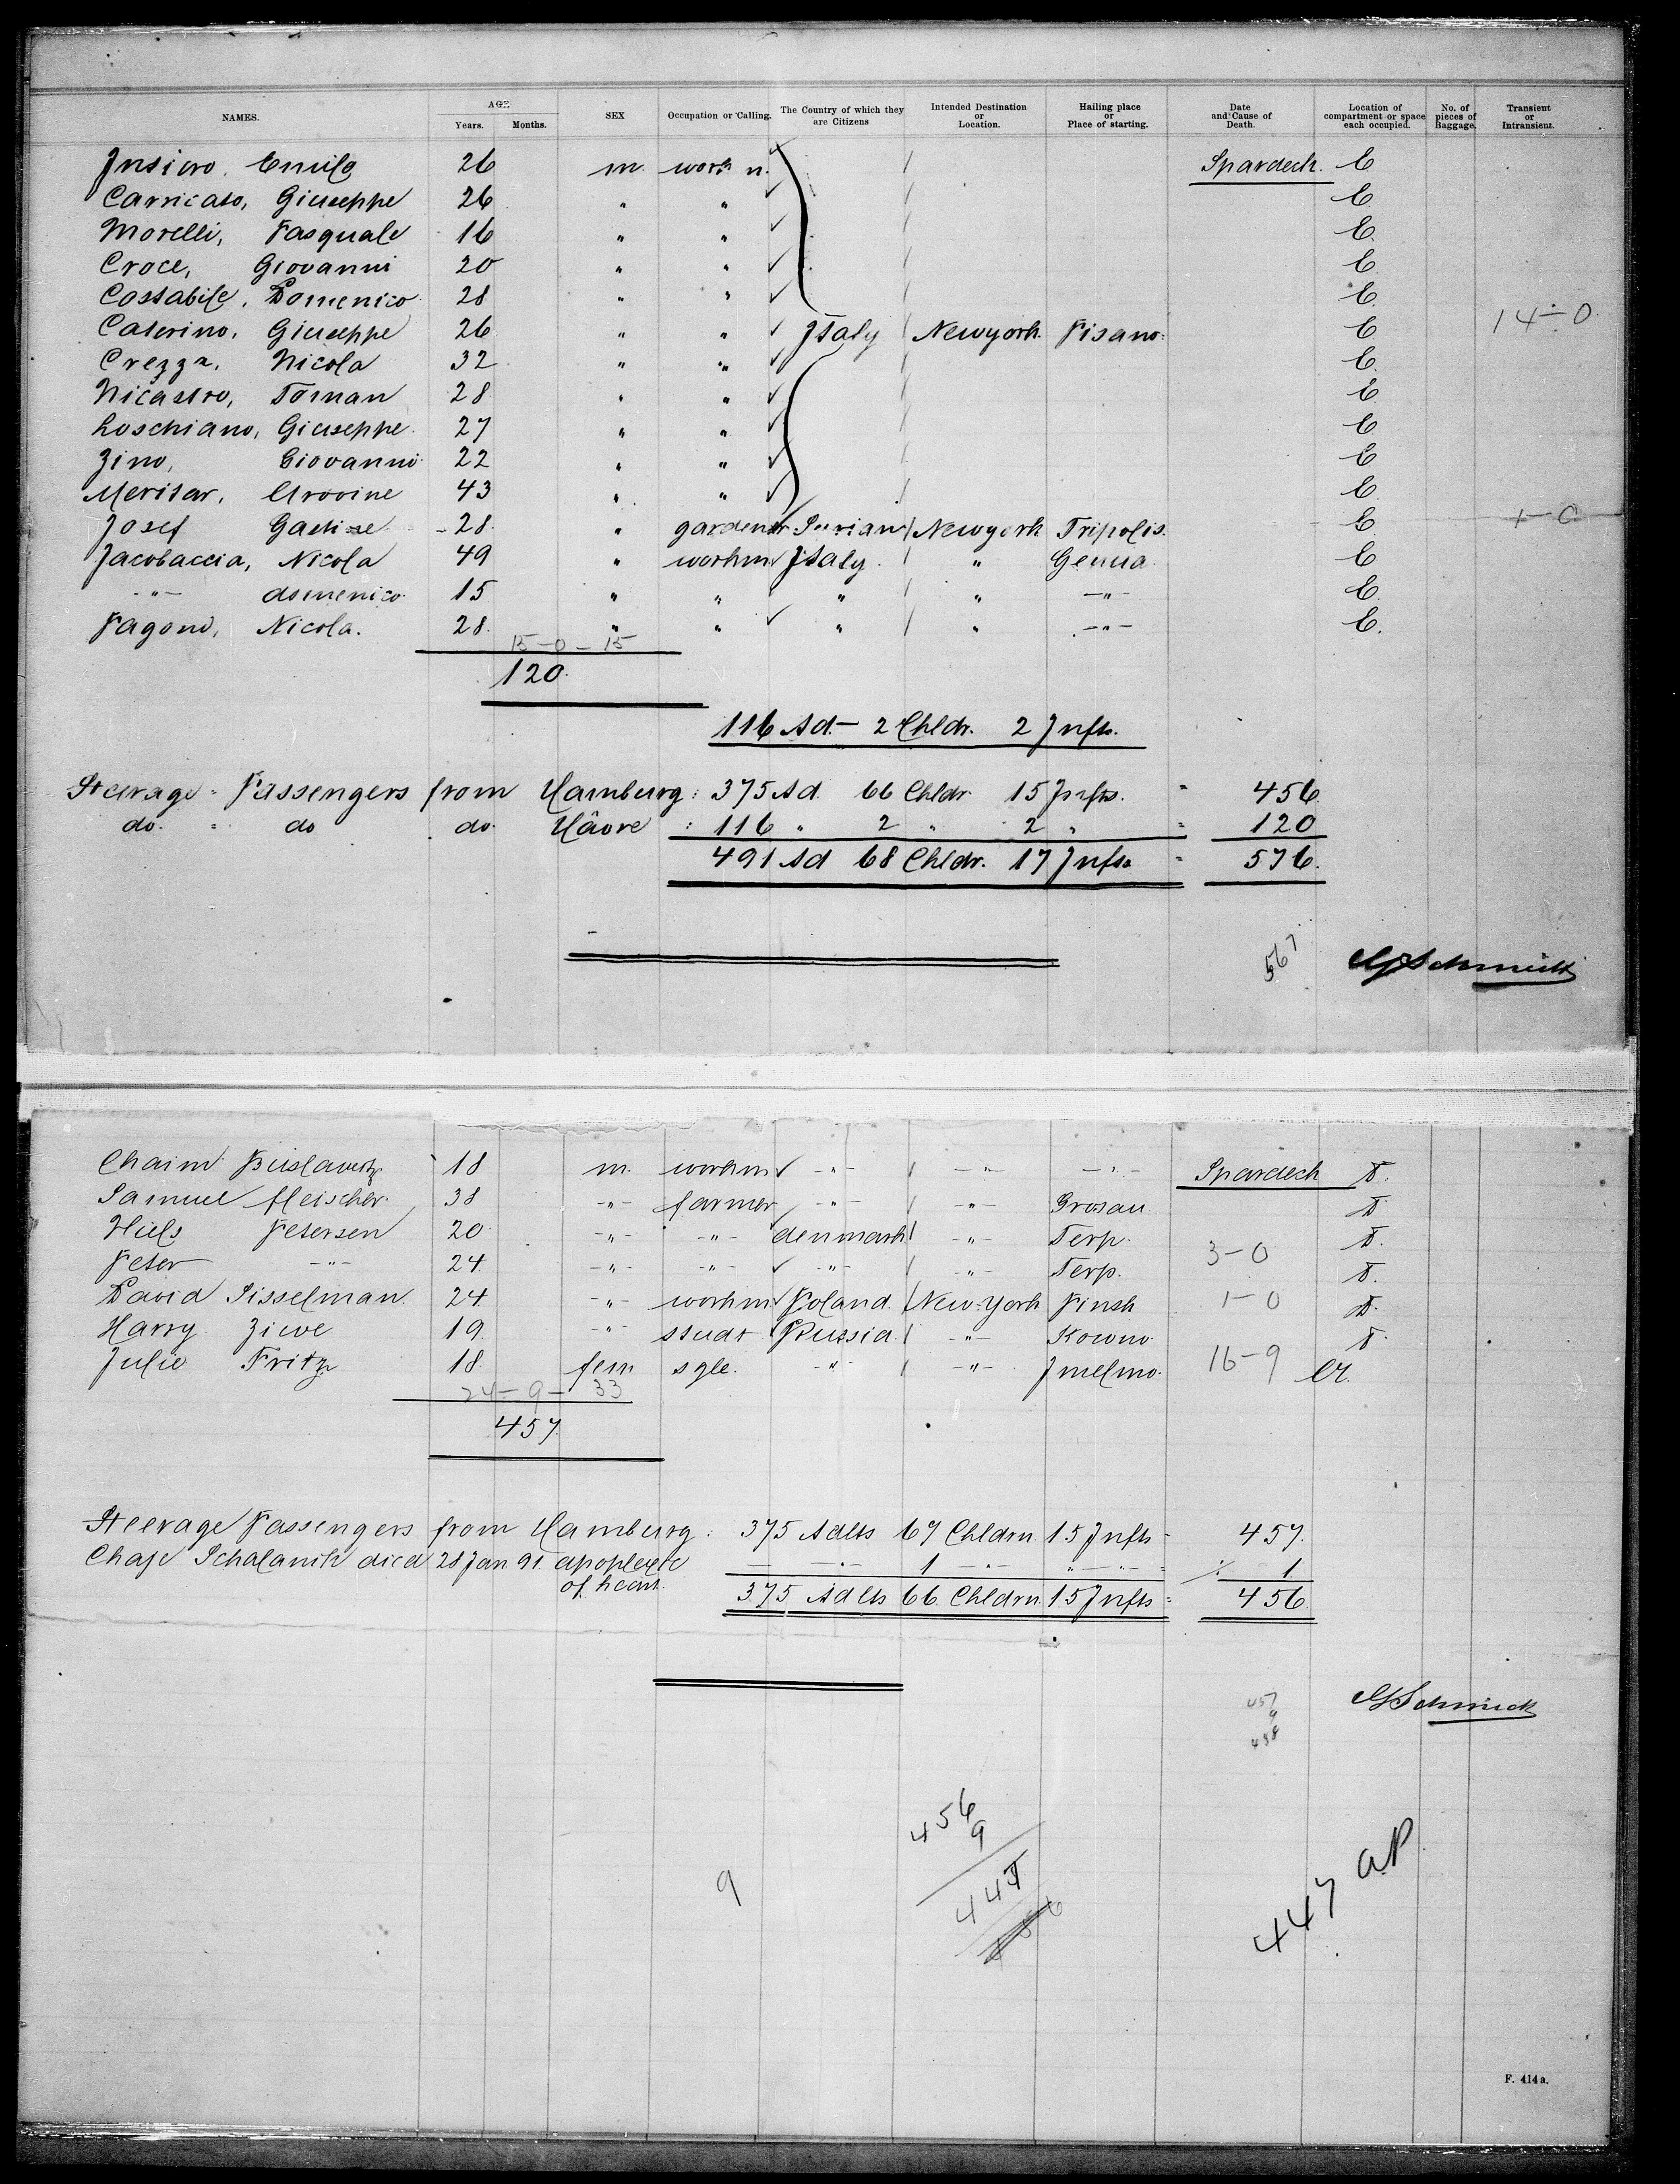 NAMES. AGE Years. Months. SEX Occupation or Calling. The Country of which they are Citizens Intended Destination or Location. Hailing place or Place of starting. Date and Cause of Death. Location of compartment or space each occupied. No. of pieces of Baggage. Transient or Intransient.
26 m. workm. Spardeck. E
Carricato, Giuseppe 26 " " E
Morelli, Pasquale 16 " " E.
Croce, Giovanni 20 " " E
Costabile, Domenico 28 " " E.
Caterino, Giuseppe 26 " " Italy Newyork. Pisano. E 14-0
Crezza, Nicola 32 " " E.
Nicastro, Toman 28 " " E
Loschiano, Giuseppe 27 " " E
Zino, Giovanni 22 " " E
Meritar, 43 " " E.
Josef 28. " gardener Newyork Tripolis. E 1-0
Jacobaccia, Nicola 49 " workm Italy. " Genua. E
-"- domenico 15 " " " " -"- E.
Pagano, Nicola. 28. " " " " -"- E.
15-0-15
120.
116 Ad.- 2 Chldr. 2 Infts.
Steerage Passengers from Hamburg: 375 Ad. 66 Chldr 15 Infts. = 456.
do. " do do. Hâvre : 116 " 2 " 2 " = 120
491 Ad 68 Chldr. 17 Infts = 576.
567
Chaim 18 m. workm -"- -"- -"- Spardeck D.
Samuel Fleischer. 38 -"- farmer -"- -"- Grosau. D
Niels Petersen 20 -"- -"- denmark -"- Terp. D.
Peter -"- 24 -"- -"- -"- -"- Terp. 3-0 D.
David Sisselman. 24 -"- workm Poland. New-York Pinsk 1-0 D.
Harry Ziwe 19. -"- studt Russia. -"- Kowno D.
Julie Fritz 18. fem sgle. -"- -"- Imelmo. 16-9
24-9-33
457.
Steerage Passengers from Hamburg: 375 Adlts 67 Chldrn 15 Infts = 457.
Chaje Schalanik died 28 Jan 91. apoplexie of heart. — -"- 1 -"- " -"- = ./. 1.
375 Adlts 66 Chldrn 15 Infts = 456.
457
9
456
9
447
9
447 AP
F. 414 a.